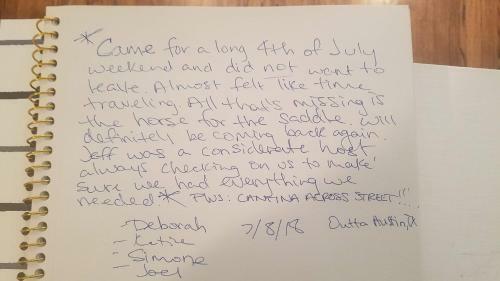 * Came for a long 4th of July
weekend and did not want to
leave. Almost felt like time
traveling. All that's missing is
the horse for the saddle. Will
definitely be coming back again.
Jeff was a considerate host
always checking on us to make
sure we had everything we
needed * PLUS: CANTINA ACROSS STREET!!!
- Deborah 7/8/18 Outta Austin, TX
- Katie
- Simone
- Joel